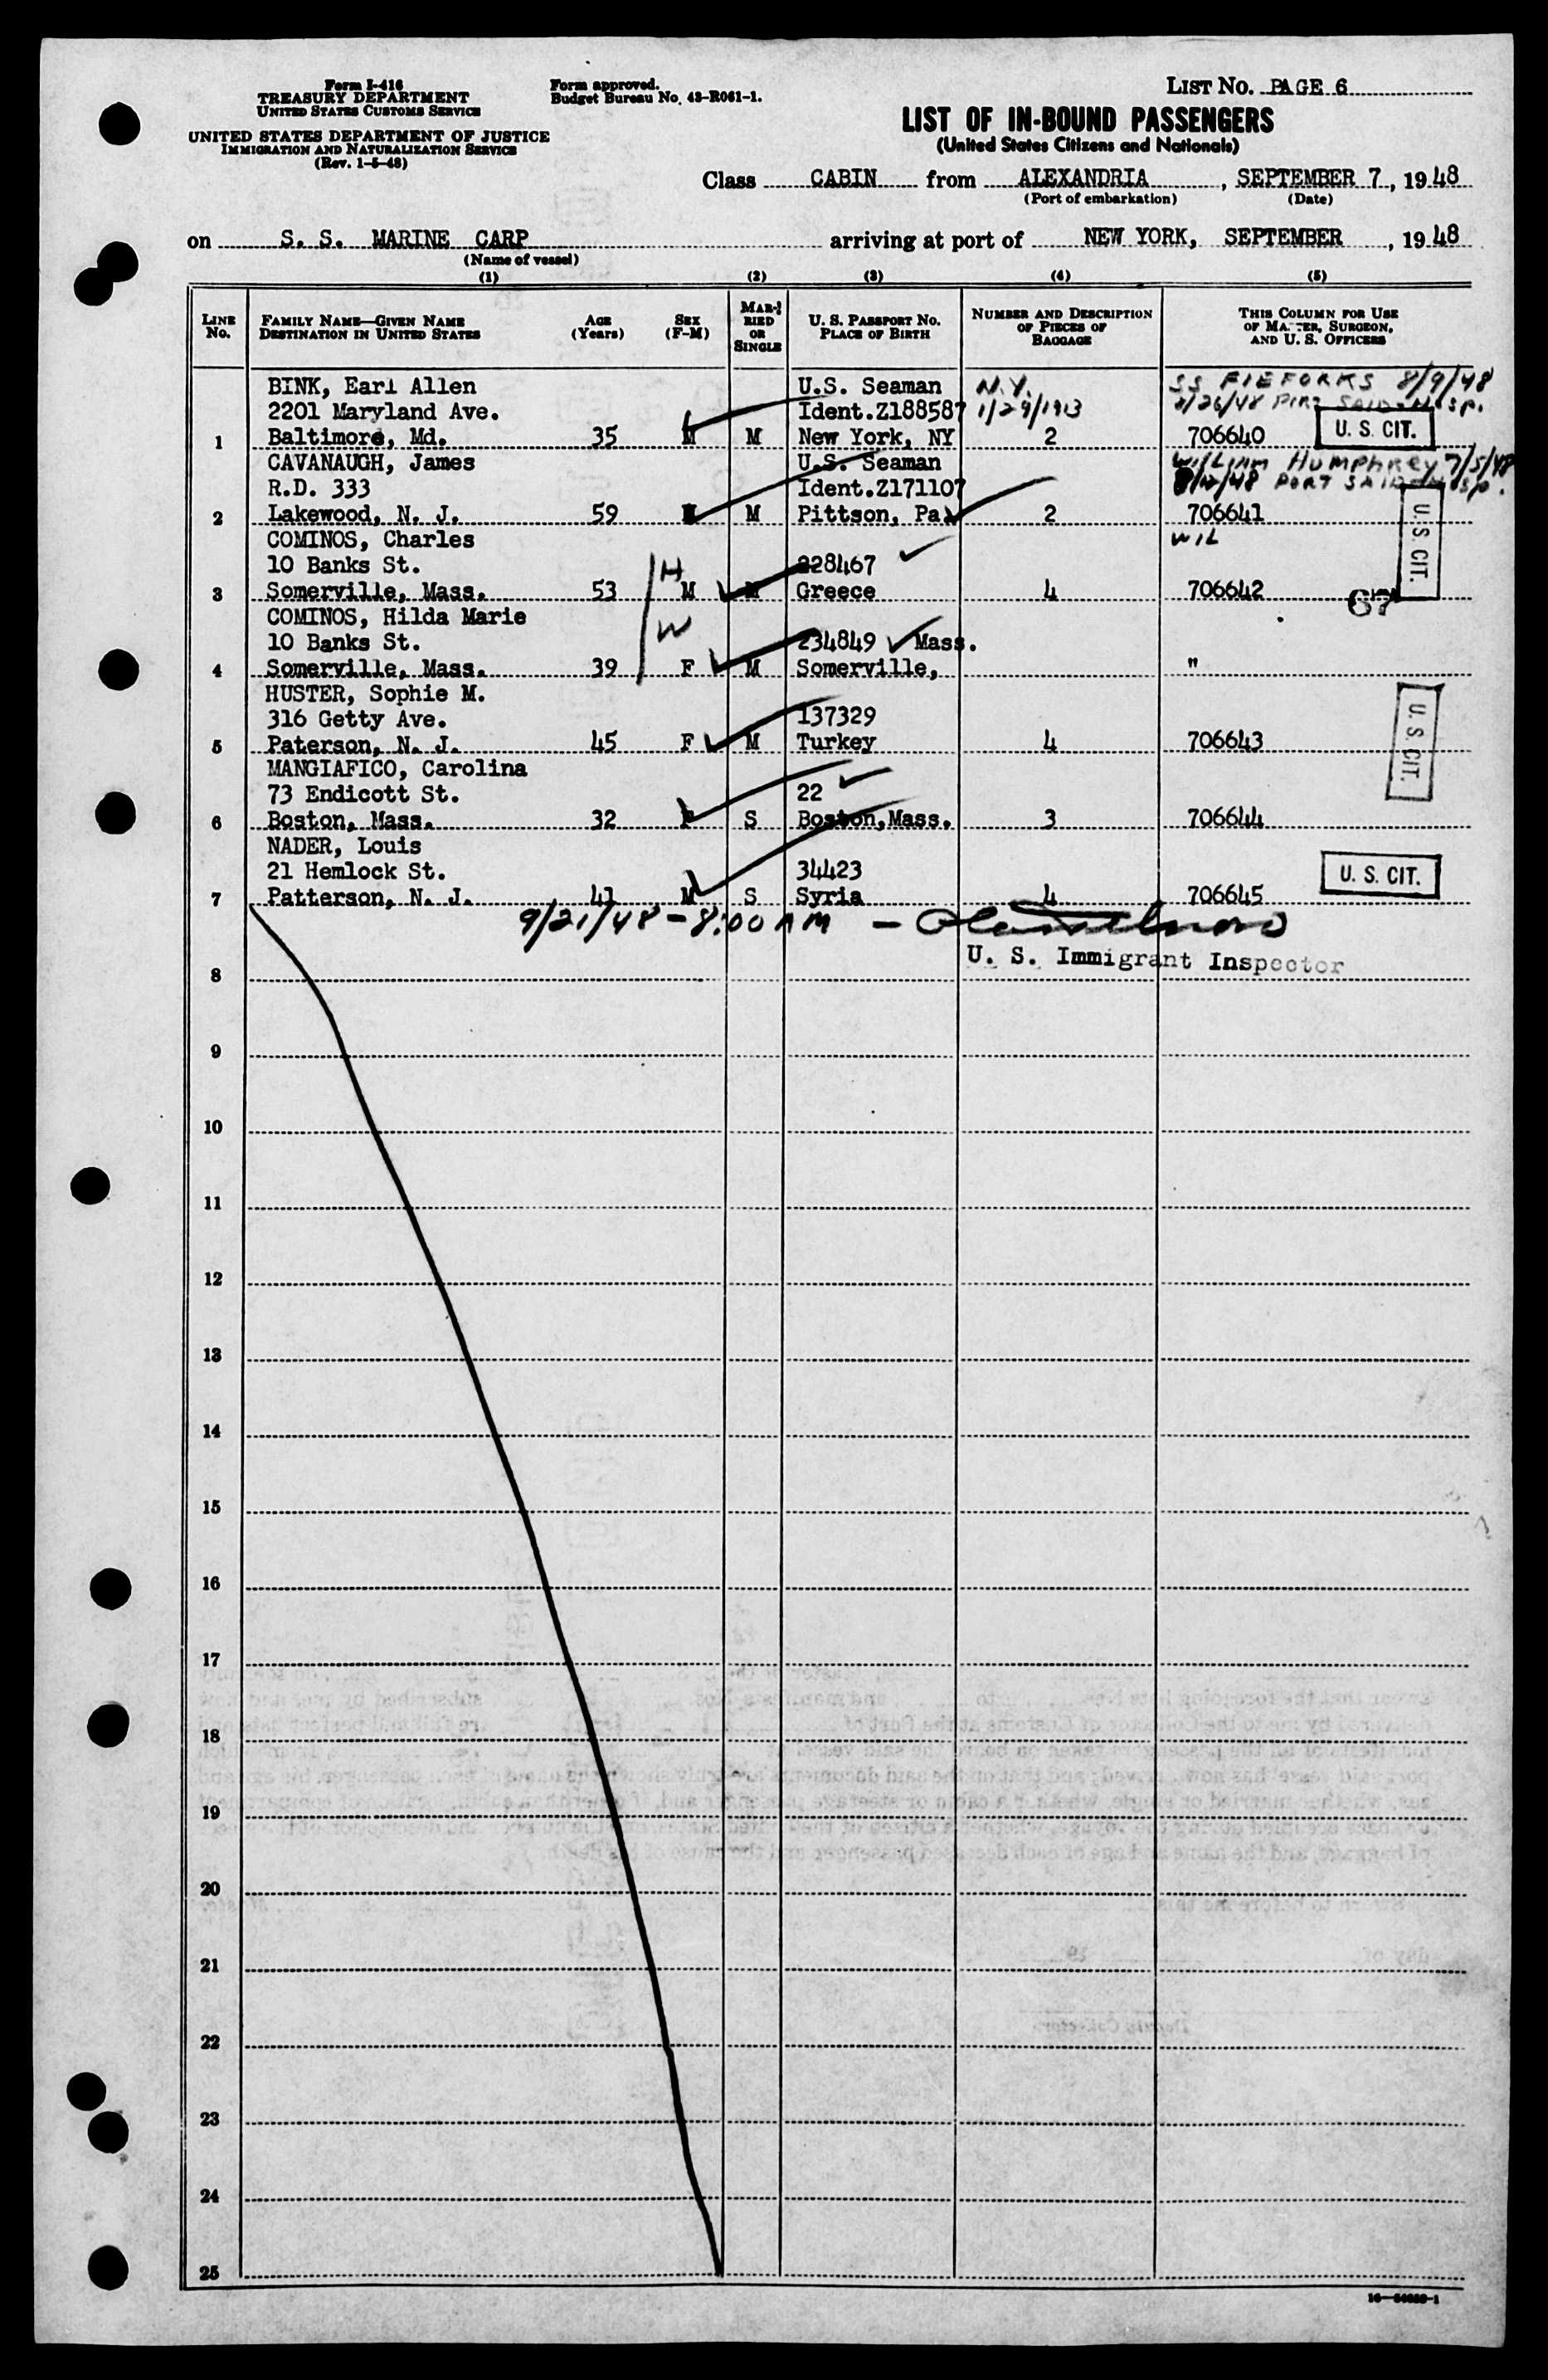 Form I-416
TREASURY DEPARTMENT
UNITED STATES CUSTOMS SERVICE
UNITED STATES DEPARTMENT OF JUSTICE
IMMIGRATION AND NATURALIZATION SERVICE
(Rev. 1-5-48)
Form approved.
Budget Bureau No. 43-R061-1.
LIST No. PAGE 6
LIST OF IN-BOUND PASSENGERS
(United States Citizens and Nationals)
Class CABIN from ALEXANDRIA, SEPTEMBER 7, 1948
(Port of embarkation) (Date)
on S. S. MARINE CARP arriving at port of NEW YORK, SEPTEMBER, 1948
(Name of vessel)
(1) (2) (3) (4) (5)
LINE No. FAMILY NAME—GIVEN NAME DESTINATION IN UNITED STATES AGE (Years) SEX (F-M) MARRIED OR SINGLE U. S. PASSPORT No. PLACE OF BIRTH NUMBER AND DESCRIPTION OF PIECES OF BAGGAGE THIS COLUMN FOR USE OF MASTER, SURGEON, AND U. S. OFFICERS
BINK, Earl Allen U.S. Seaman N.Y. SS FIE FORKS 8/9/48
2201 Maryland Ave. Ident.Z188587 1/29/1913 /26/48 PORT SAID HOSP.
1 Baltimore, Md. 35 M M New York, NY 2 706640 U. S. CIT.
CAVANAUGH, James U.S. Seaman WILLIAM HUMPHREY 7/5/48
R.D. 333 Ident.Z171107 /48 PORT SAID HOSP.
2 Lakewood, N. J. 59 M M Pittson, Pa. 2 706641 U. S. CIT.
COMINOS, Charles WIL
10 Banks St. H 228467
3 Somerville, Mass. 53 M M Greece 4 706642 67
COMINOS, Hilda Marie
10 Banks St. W 234849 Mass.
4 Somerville, Mass. 39 F M Somerville, "
HUSTER, Sophie M.
316 Getty Ave. 137329
5 Paterson, N. J. 45 F M Turkey 4 706643 U. S. CIT.
MANGIAFICO, Carolina
73 Endicott St. 22
6 Boston, Mass. 32 F S Boston, Mass. 3 706644
NADER, Louis
21 Hemlock St. 34423
7 Patterson, N. J. 41 M S Syria 4 706645 U. S. CIT.
9/21/48 - 8:00 AM -
U. S. Immigrant Inspector
8
9
10
11
12
13
14
15
16
17
18
19
20
21
22
23
24
25